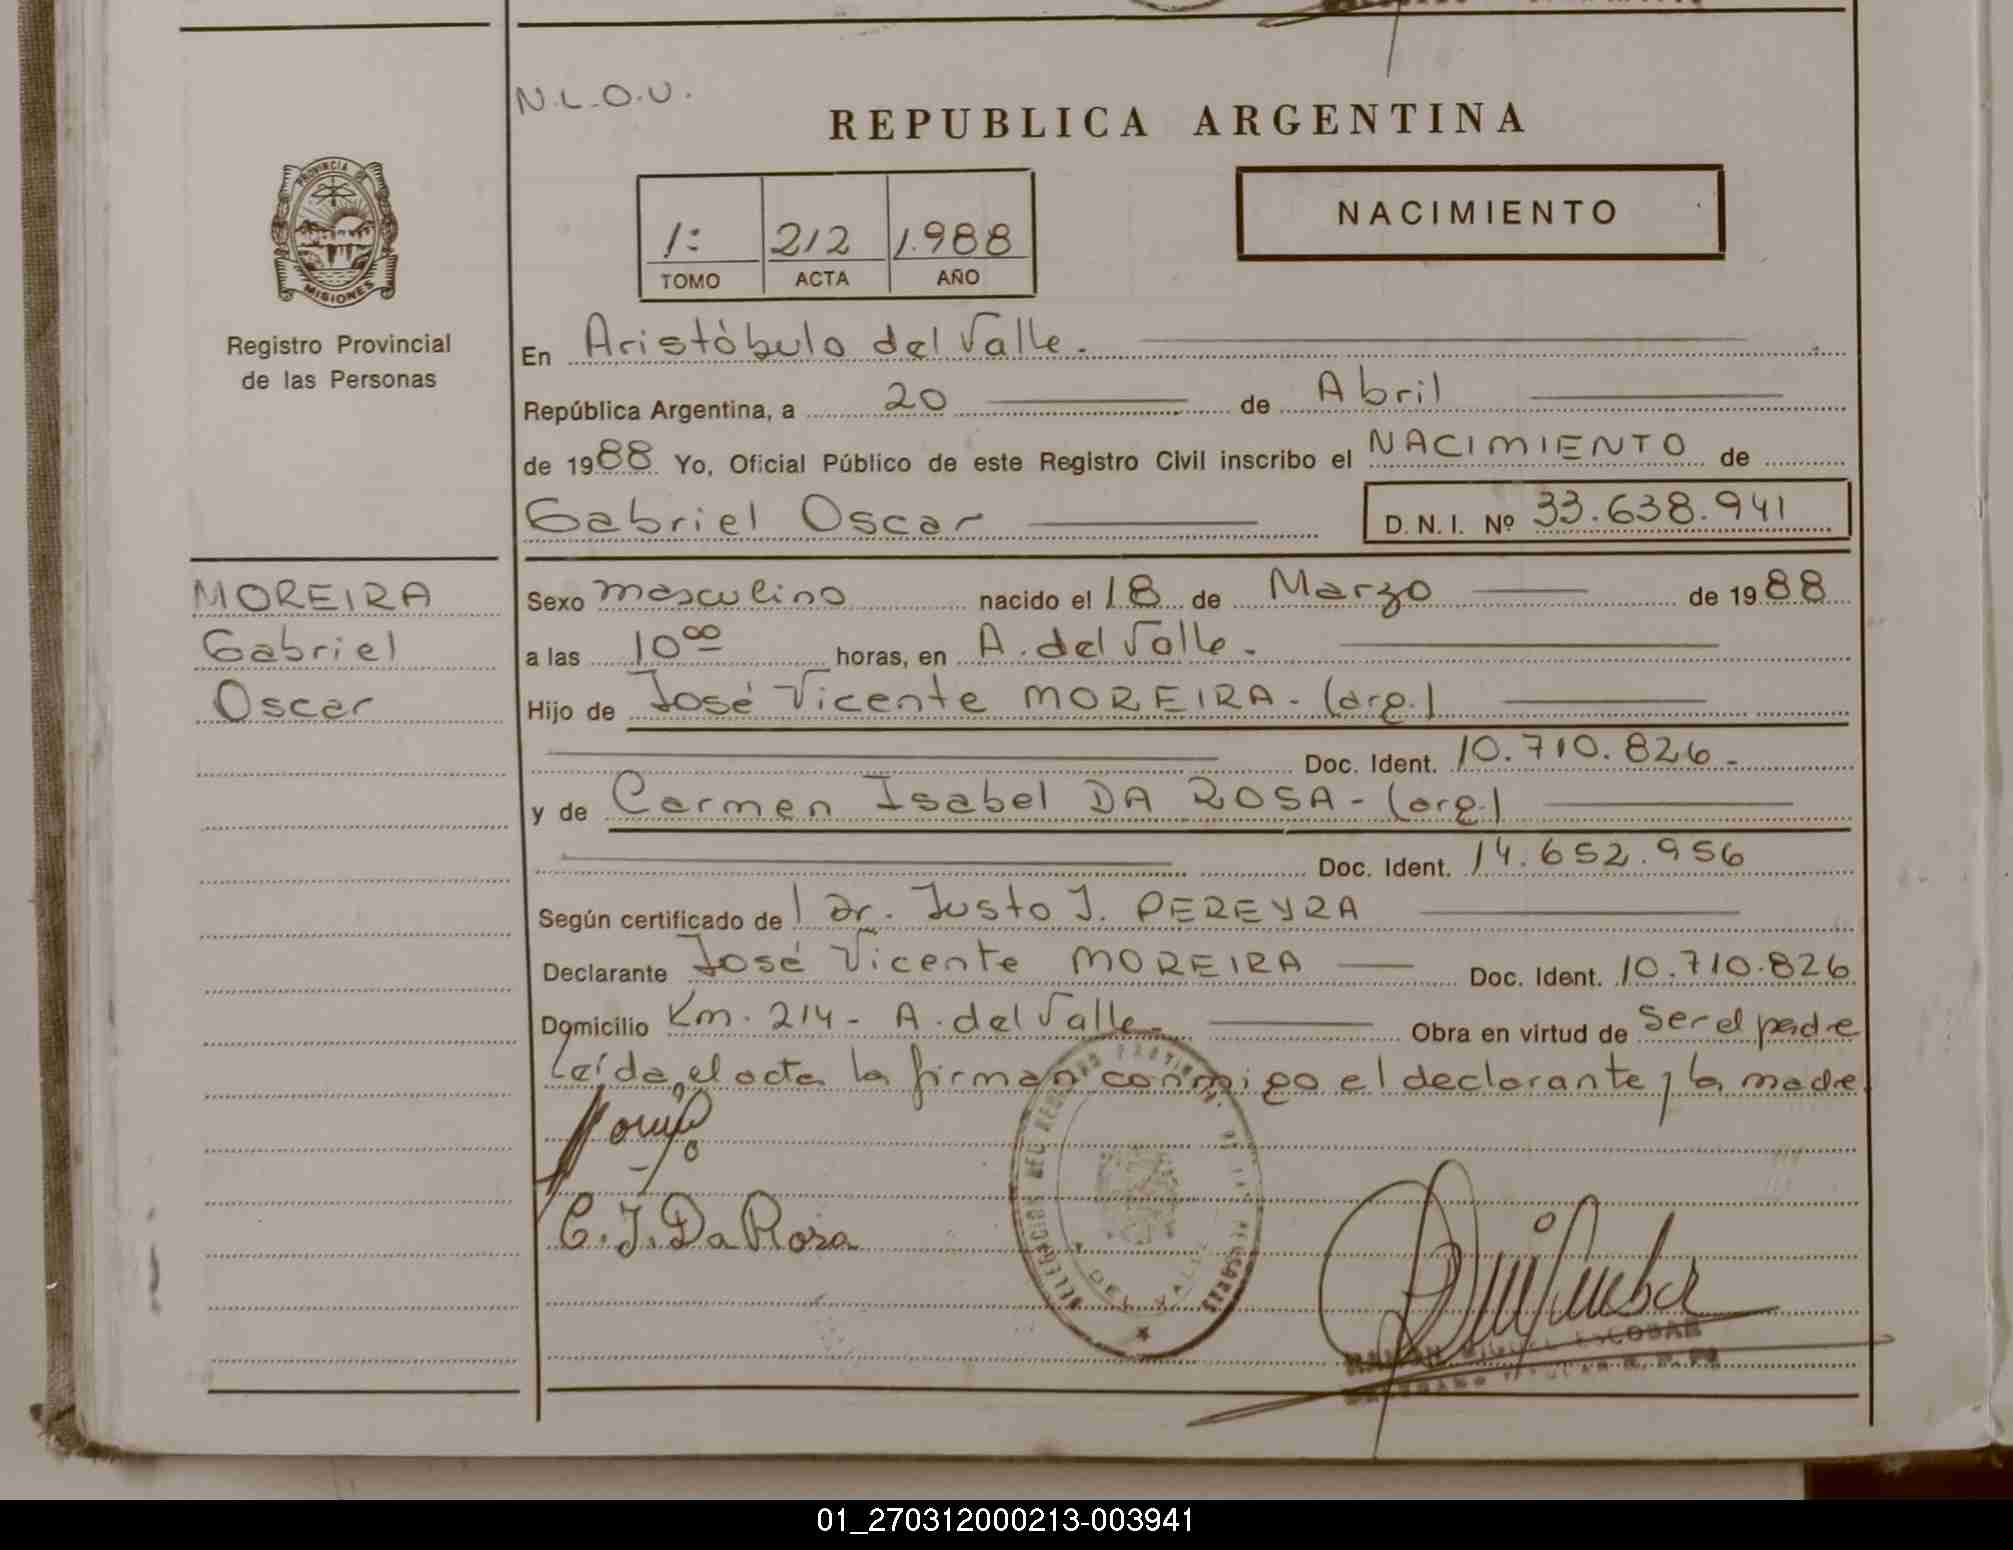 N.L.O.U.
REPUBLICA ARGENTINA
PROVINCIA DE
MISIONES
1: 212 1.988
TOMO ACTA AÑO
NACIMIENTO
Registro Provincial
de las Personas
En Aristóbulo del Valle.
República Argentina, a 20 de Abril
de 1988 Yo, Oficial Público de este Registro Civil inscribo el NACIMIENTO de
Gabriel Oscar D.N.I. Nº 33.638.941
MOREIRA
Gabriel
Oscar
Sexo masculino nacido el 18 de Marzo de 1988
a las 10 00 horas, en A. del Valle.
Hijo de José Vicente MOREIRA - (arg.)
Doc. Ident. 10.710.826 -
y de Carmen Isabel DA ROSA - (arg.)
Doc. Ident. 14.652.956
Según certificado de Dr. Justo J. PEREYRA
Declarante José Vicente MOREIRA Doc. Ident. 10.710.826
Domicilio Km. 214 - A. del Valle - Obra en virtud de ser el padre
Leída el acta la firman conmigo el declarante y la madre.
C. I. Da Rosa
DEL VALLE
RAMON MIGUEL ESCOBAR
01_270312000213-003941